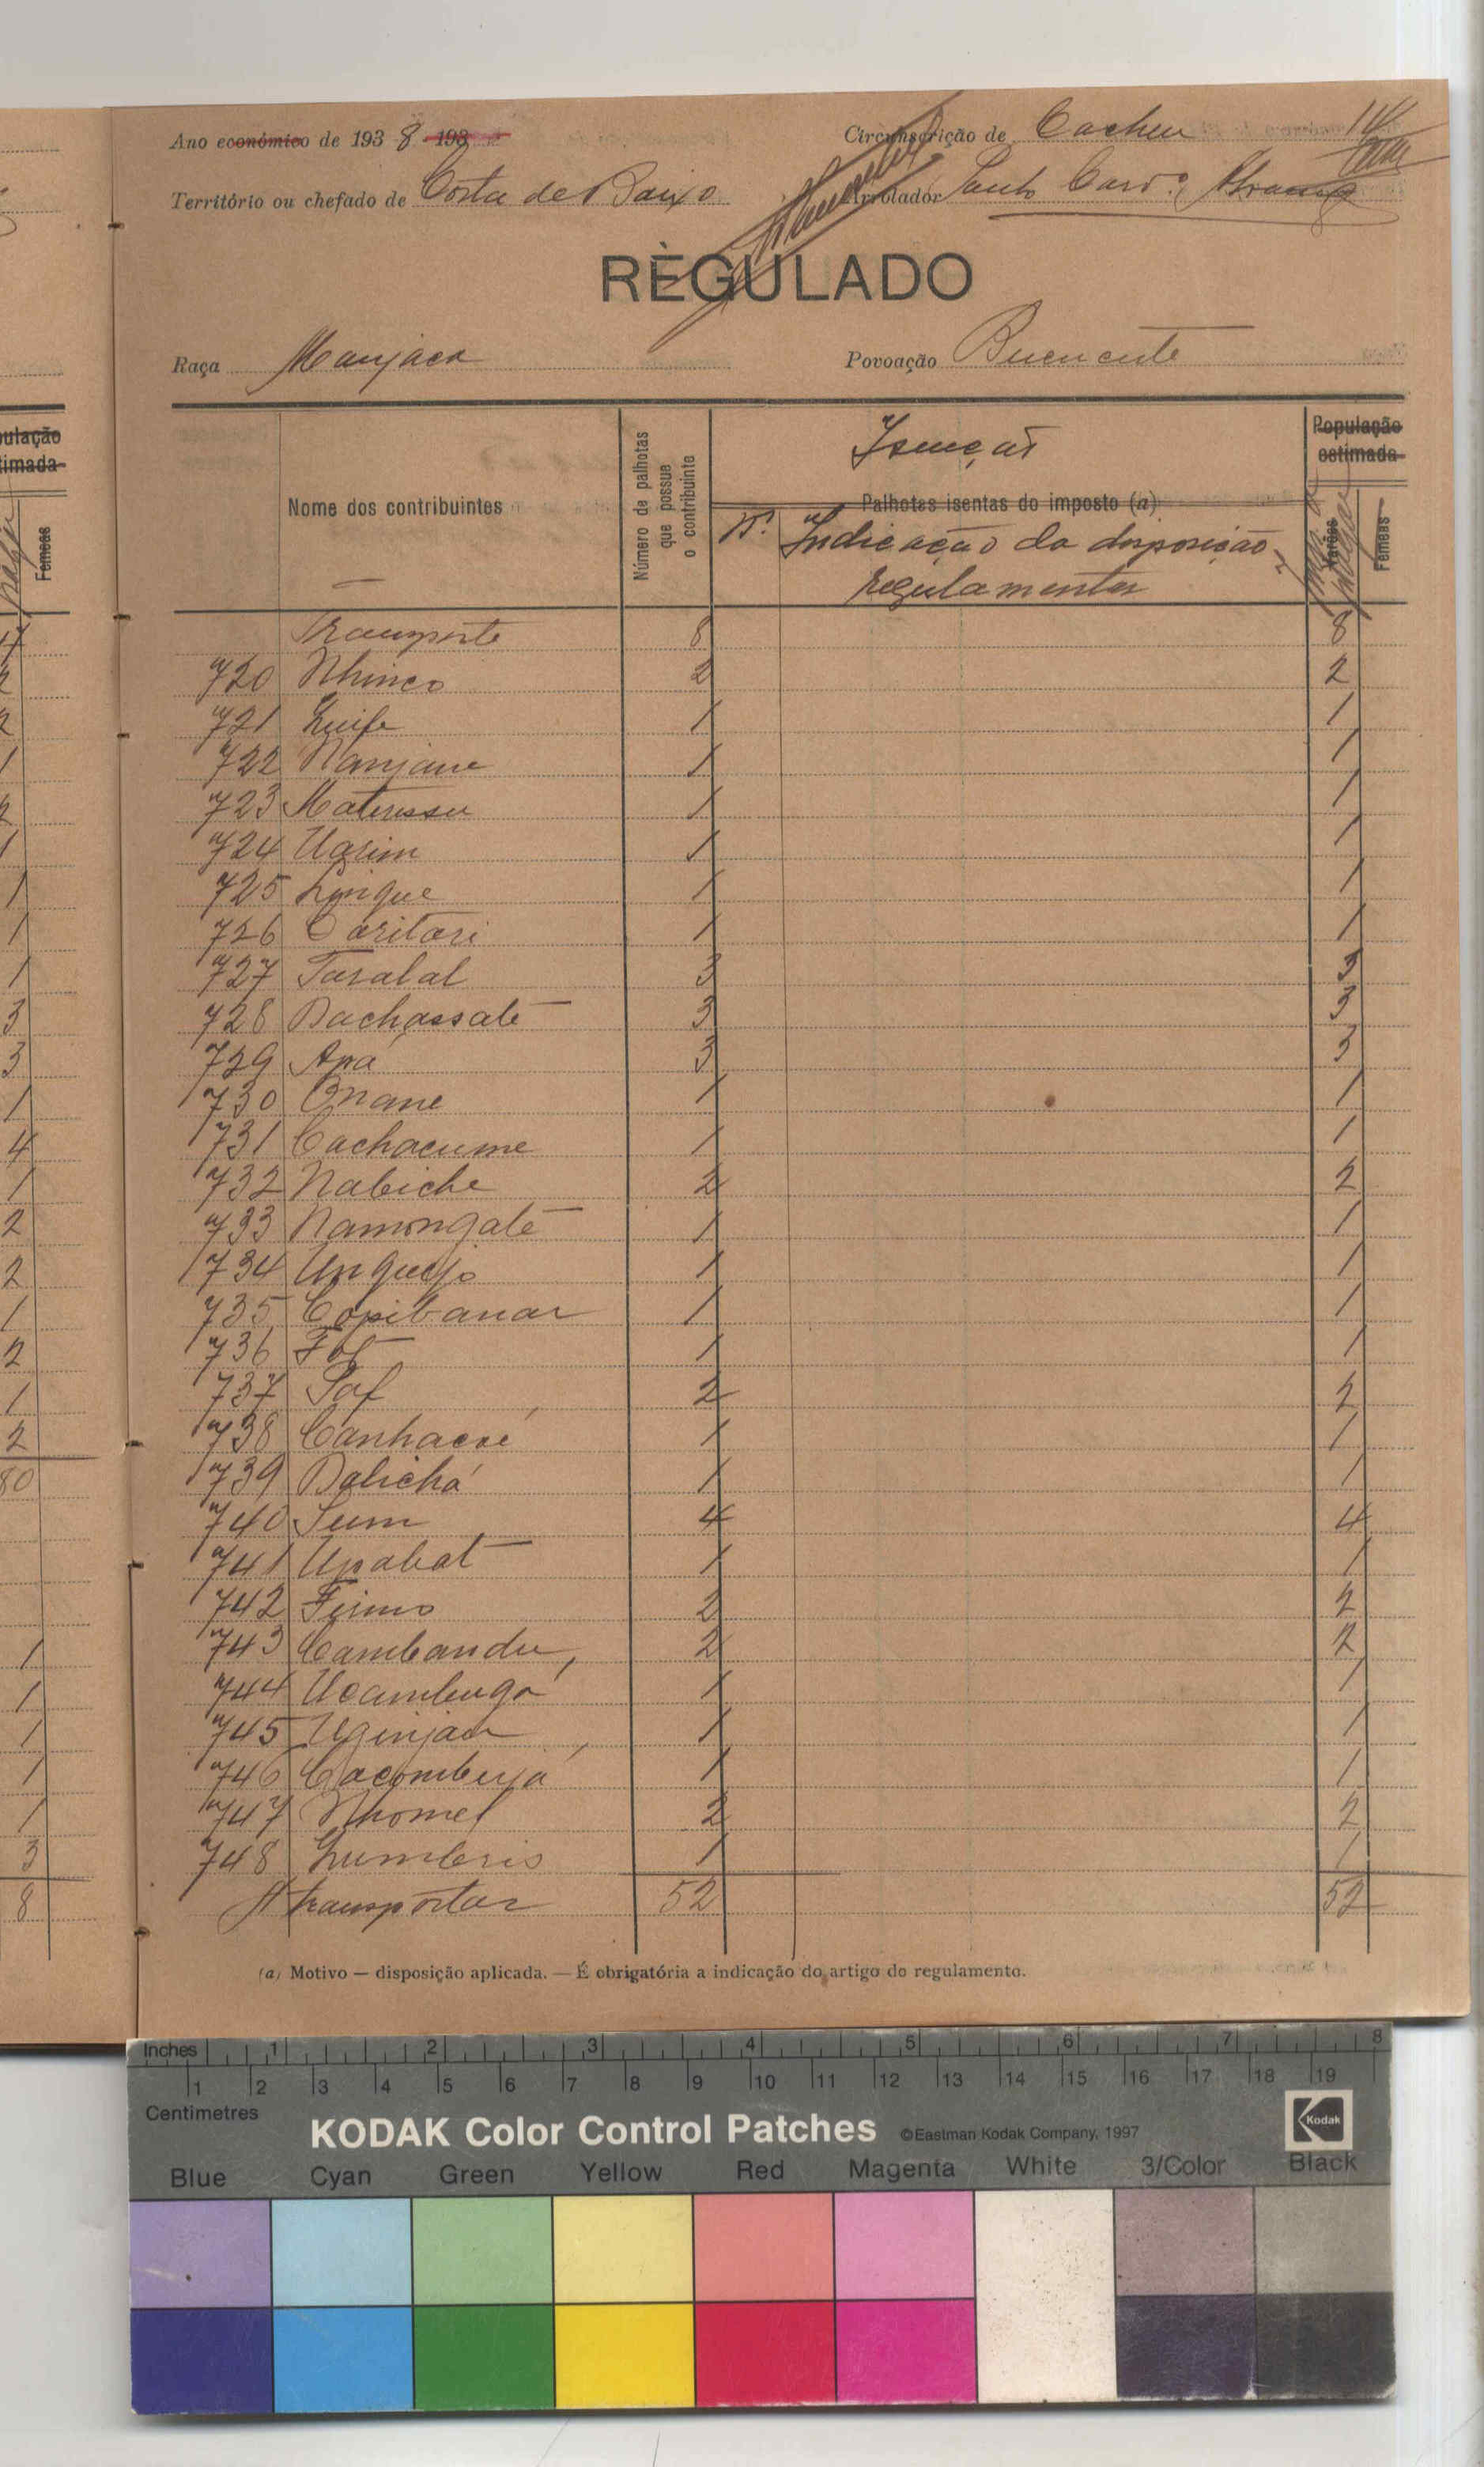 Ano económico de 193 8 -193
Circunscrição de Cacheu
14
Território ou chefado de Costa de Baixo
Arrolador
REGULADO
Raça Manjaca
Povoação
Isenção
População estimada
Nome dos contribuintes
Número de palhotas que possue o contribuinte
Palhotas isentas do imposto (a)
N.º Indicação da disposição
regulamentar
Varões
Fêmeas
Transporte 8 8
720 Nhinco 2 2
721 Luife 1 1
722 Nanjane 1 1
723 1 1
724 Uarim 1 1
725 Lingue 1 1
726 Caritari 1 1
727 Taralal 3 3
728 Dachassate 3 3
729 Apa 3 3
730 Onane 1 1
731 Cachacume 1 1
732 Nabiche 2 2
733 Namongate 1 1
734 Unquejo 1 1
735 Copibanar 1 1
736 1 1
737 2 2
738 1 1
739 Dalichá 1 1
740 Sum 4 4
741 Upabat 1 1
742 Firmo 2 2
743 Cambandu 2 2
744 Ucambugá 1 1
745 1 1
746 1 1
747 Nhomel 2 2
748 Lumbris 1 1
A transportar 52 52
(a) Motivo — disposição aplicada. — É obrigatória a indicação do artigo do regulamento.
Inches 1 2 3 4 5 6 7 8
1 2 3 4 5 6 7 8 9 10 11 12 13 14 15 16 17 18 19
Centimetres
KODAK Color Control Patches ©Eastman Kodak Company, 1997 Kodak
Blue Cyan Green Yellow Red Magenta White 3/Color Black